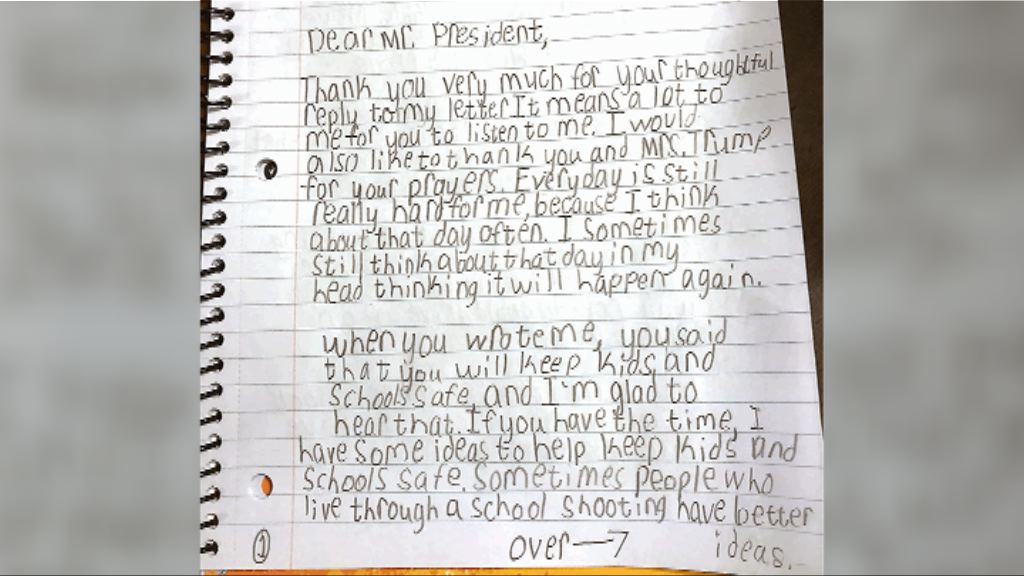 Dear Mr. President,
Thank you very much for your thoughtful
reply to my letter. It means a lot to
me for you to listen to me. I would
also like to thank you and Mrs. Trump
for your prayers. Everyday is still
really hard for me, because I think
about that day often. I sometimes
still think about that day in my
head thinking it will happen again.
When you wrote me, you said
that you will keep kids and
schools safe, and I'm glad to
hear that. If you have the time, I
have some ideas to help keep kids and
schools safe. Sometimes people who
live through a school shooting have better
ideas.
① over—7